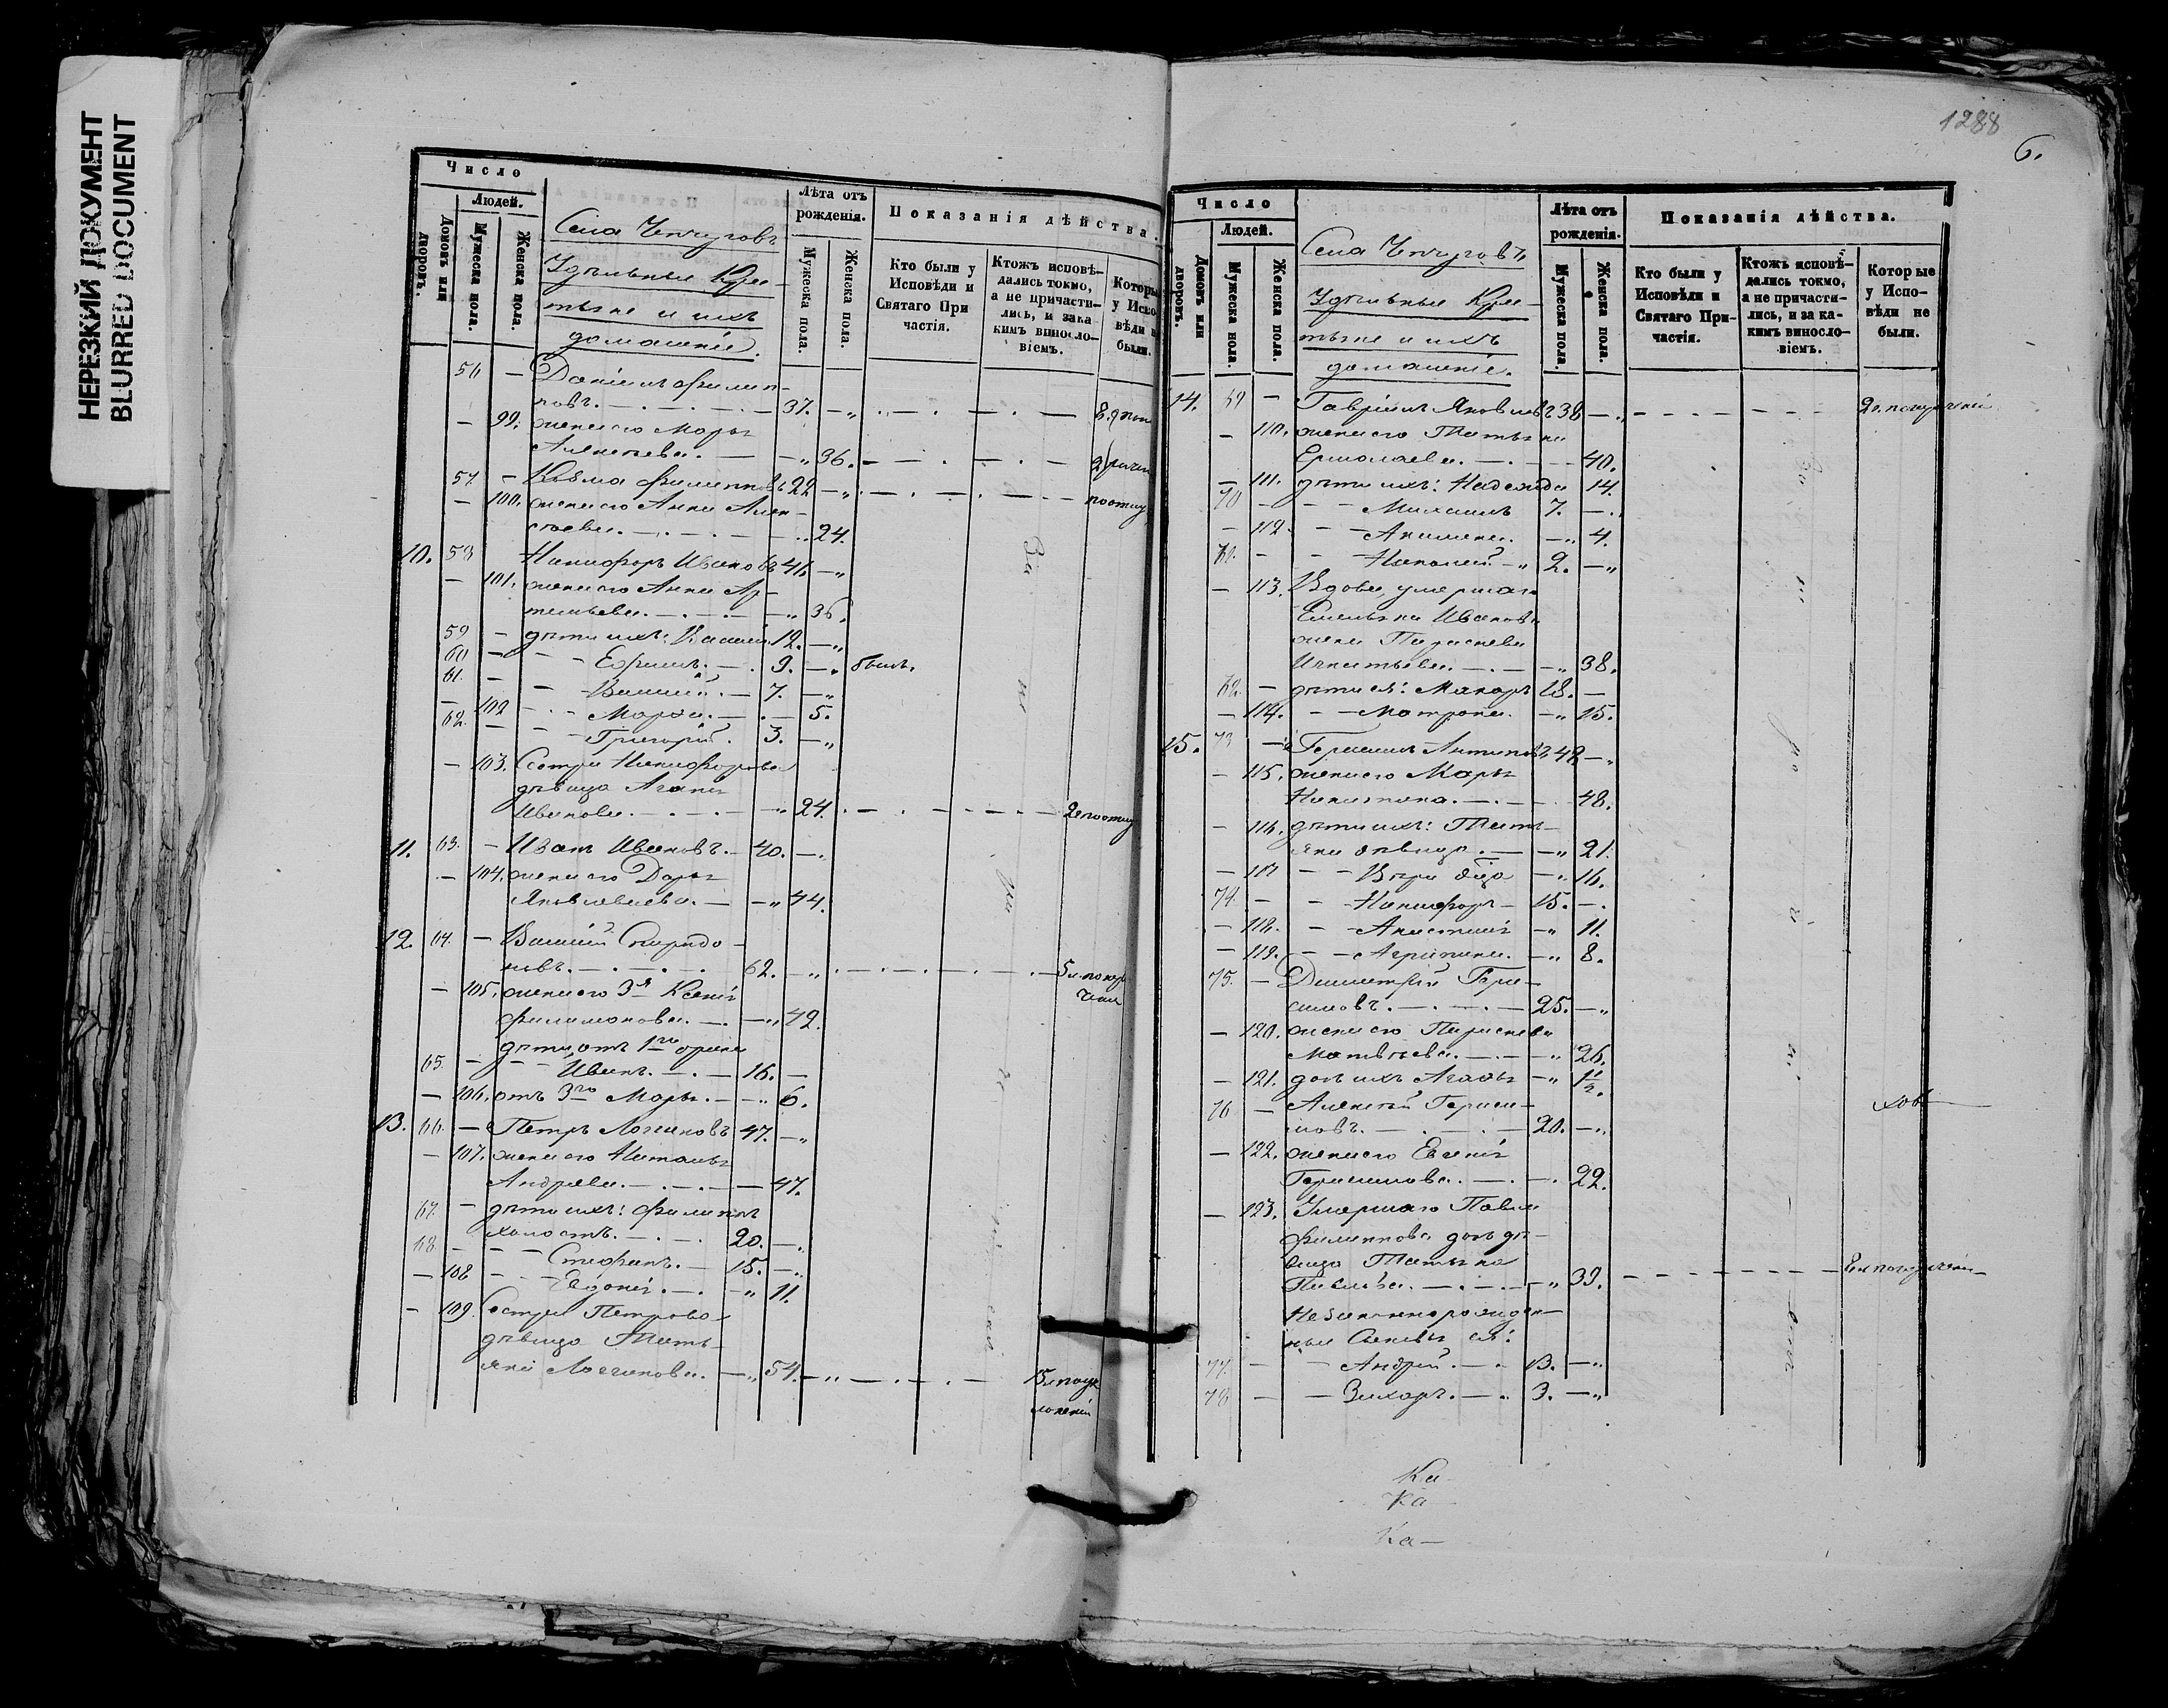 НЕРЕЗКИЙ ДОКУМЕНТ
BLURRED DOCUMENT
Число
Людей.
Домовъ или дворовъ.
Мужеска пола.
Женска пола.
Села
Удѣльные Кре-
стьяне и ихъ
домашніе.
Лѣта отъ рожденія.
Мужеска пола.
Женска пола.
Показанія дѣйства.
Кто были у Исповѣди и Святаго При частія.
Ктожъ исповѣ- дались токмо, а не причасти- лись, и зака кимъ винос ло- віемъ.
Которы у Испо вѣди н были.
56 — Даніилъ Филип-
повъ. 37. — „
— 99. жена его Марья
Алексѣева. — „ 36.
57 — Козьма Филипповъ 22 — „
— 100. жена его Анна Алек-
сѣева. — „ 24.
10. 58 Никифоръ Ивановъ 41. — „
— 101. жена его Анна Ар-
темьева. — „ 36.
59 — дѣти ихъ: 12. — „
60 — — Ефимъ. 9. — „ былъ.
61. — — Василій. 7. — „
— 102 — Марѳа. — 5.
62. — — Григорій. 3. — „
— 103. Сестра Никифорова
дѣвица Агафья
Иванова. — „ 24.
11. 63. — Иванъ Ивановъ. 40. —
— 104. жена его Дарья
Яковлевлева. — „ 44.
12. 64. — Василій Спиридо-
новъ. 62. — „
— 105. жена его 3я Ксенія
Филимонова. — „ 42.
дѣти отъ 1го брака
65. — Иванъ. 16. —
— 106. отъ 3го Марья. — „ 6.
13. 66. — Петръ Логиновъ 47. — „
— 107. жена его Наталья
Андреева. — 47.
67. — дѣти ихъ: Филиппъ
холостъ. 20. —
68. — — Стефанъ. 15. —
— 108 — Евдокія. — „ 11.
— 109. Сестра Петрова
дѣвица Тать-
яна Логинова. — „ 54.
1288
6.
Число
Людей.
Домовъ или дворовъ.
Мужеска пола.
Женска пола.
Села
Удѣльные Кре-
стьяне и ихъ
домашніе.
Лѣта отъ рожденія.
Мужеска пола
Женска пола.
Показанія дѣйства.
Кто были у Исповѣди и Святаго При- частія.
Ктожъ исповѣ- дались токмо, а не причасти- лись, и за ка- кимъ винос ло- віемъ.
Которые у Испо- вѣди не были.
14. 69 — Гавріилъ Яковлевъ 38 —
— 110. жена его Татьяна
Ермолаева. — 40.
— 111. дѣти ихъ: Надежда 14.
70 — — Михаилъ 7. —
— 112 — Акилина. — „ 4.
71. — — Николай — „ 2. — „
— 113. Вдова, умершаго
Емельяна Иванова
жена Параскева
Игнатьева. — „ 38.
72. — дѣти ея: Макаръ 18. —
— 114. — Матрона. — „ 15.
15. 73 — Герасимъ Антиповъ 42 — „
— 115. жена его Марья
Никитина. — 48.
— 116. дѣти ихъ: Тать-
яна дѣвица. — „ 21.
— 117 — Вѣра — „ 16.
74. — — Никифоръ — 15. —
— 118. — Анастасія — „ 11.
— 119. — Агрипина. — „ 8.
75. — Димитрій Гера-
симовъ. 25. — „
— 120. жена его Параскева
Матвѣева. — „ 26.
— 121. дочь ихъ Агафья — „ 1½.
76 — Алексѣй Гераси-
мовъ. 20. — „
— 122. жена его Евгенія
Герасимова. — 22.
— 123. Умершаго Павла
Филиппова дочь дѣ-
вица Татьяна
Павлова. — „ 39.
Незаконнорожден-
ные Сыновья ея:
77. — — Андрей. 13. — „
78 — — Захаръ. 3. — „
Ка
Ка
Ка—